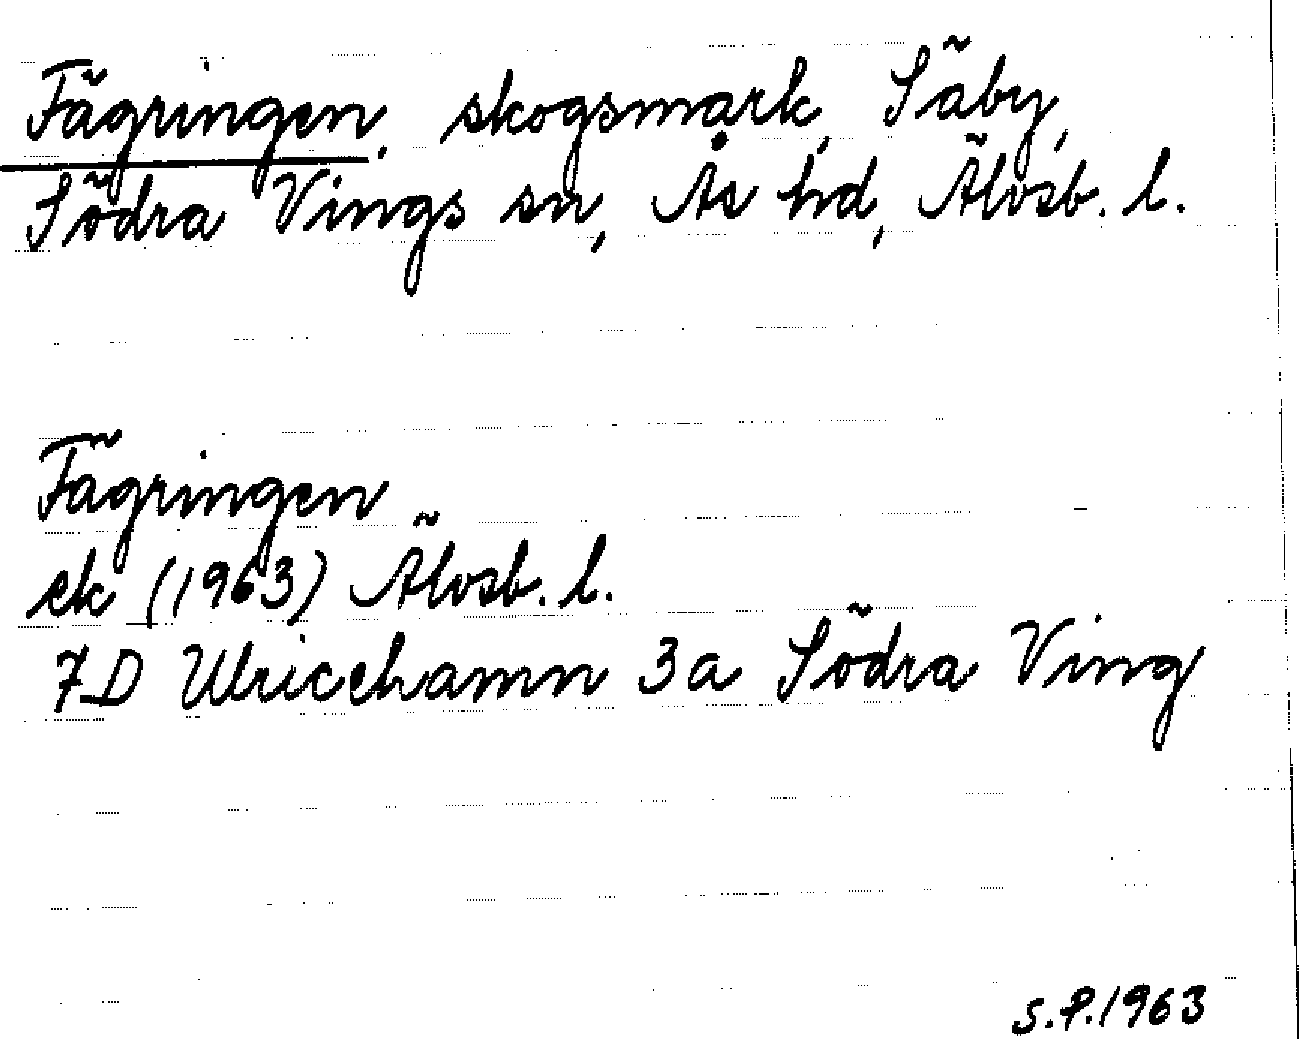 Fägringen, skogsmark, Säby,
Södra Vings sn, Ås hd, Älvsb. l.
Fägringen
ek (1963) Älvsb. l.
7D Ulricehamn 3a Södra Ving
S.P. 1963